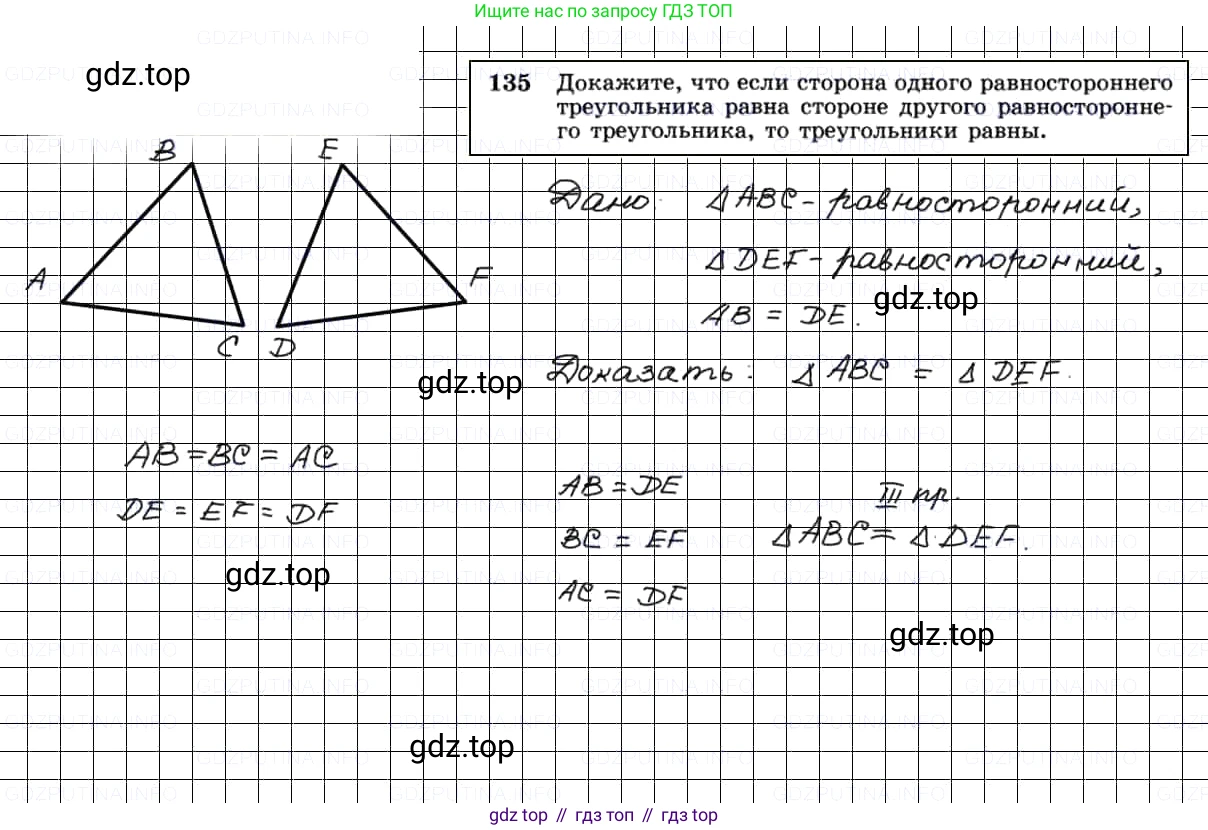 Ищите нас по запросу ГДЗ ТОП
gdz.top
135 Докажите, что если сторона одного равностороннего
треугольника равна стороне другого равносторонне-
го треугольника, то треугольники равны.
B E
A F
C D
Дано: △ABC - равносторонний,
△DEF - равносторонний,
gdz.top
AB = DE.
Доказать: △ABC = △DEF.
gdz.top
AB = BC = AC
DE = EF = DF
gdz.top
AB = DE
BC = EF
AC = DF
III пр.
△ABC = △DEF.
gdz.top
gdz.top
gdz top // гдз топ // gdz top
GDZPUTINA.INFO